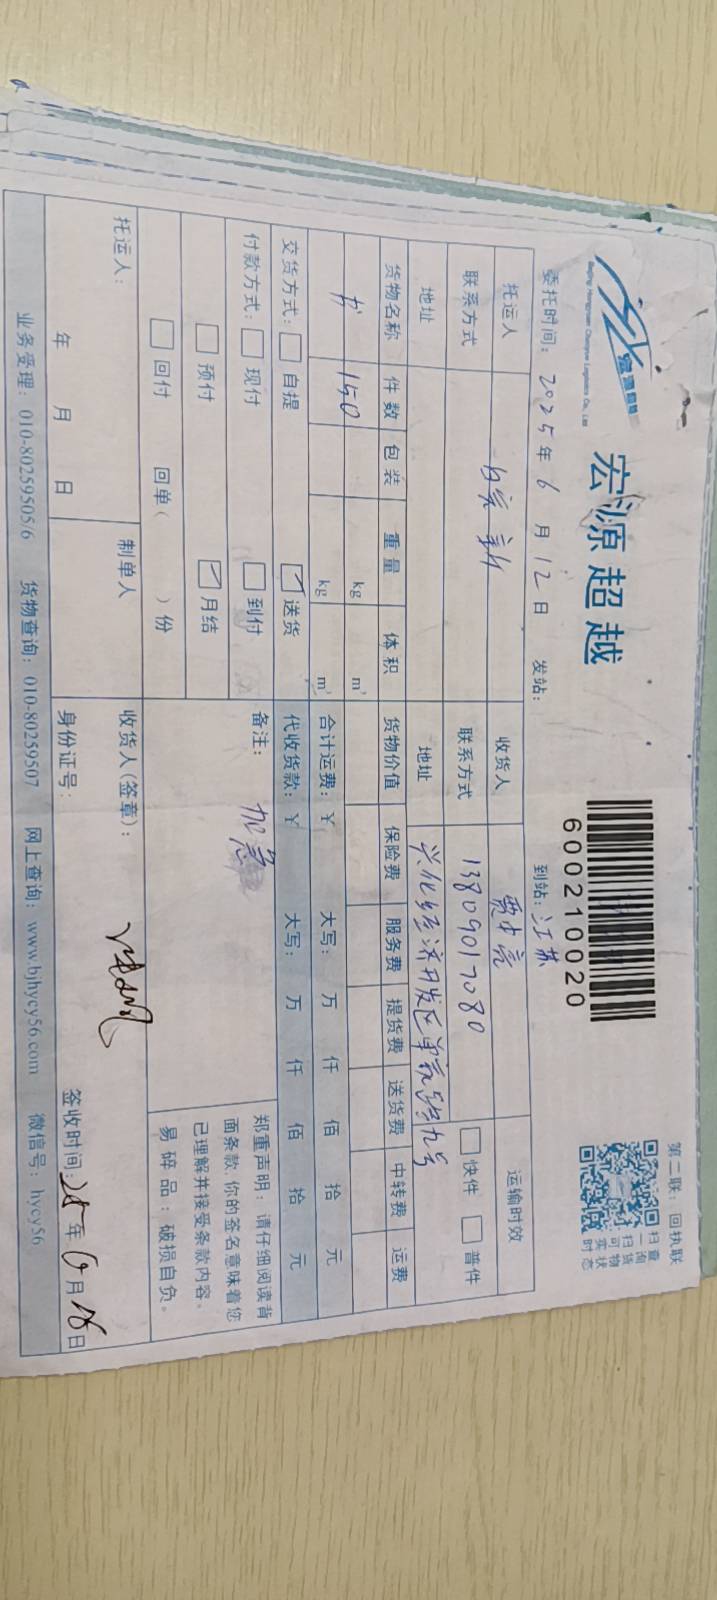 第二联：回执联
宏源超越
Beijing Hongyuan Chaoyue Logistics Co., Ltd
宏源超越
600210020
扫一扫可实时
查询货物状态
委托时间：2025年6月12日 发站： 到站：江苏
托运人 收货人 贾中亮 运输时效
联系方式 联系方式 13809017080 快件 普件
地址 地址 兴化经济开发区 路九号
货物名称 件数 包装 重量 体积 货物价值 保险费 服务费 提货费 送货费 中转费 运费
书 150 kg m³
kg m³ 合计运费：¥ 大写： 万 仟 佰 拾 元
交货方式： 自提 送货 代收货款：¥ 大写： 万 仟 佰 拾 元
付款方式： 现付 到付 备注： 加急
预付 月结
回付 回单（ ）份
郑重声明：请仔细阅读背
面条款，你的签名意味着您
已理解并接受条款内容。
易碎品：破损自负。
托运人： 制单人 收货人（签章）：
年 月 日 身份证号： 签收时间：25年6月18日
业务受理：010-80259505/6 货物查询：010-80259507 网上查询：www.bjhycy56.com 微信号：hycy56